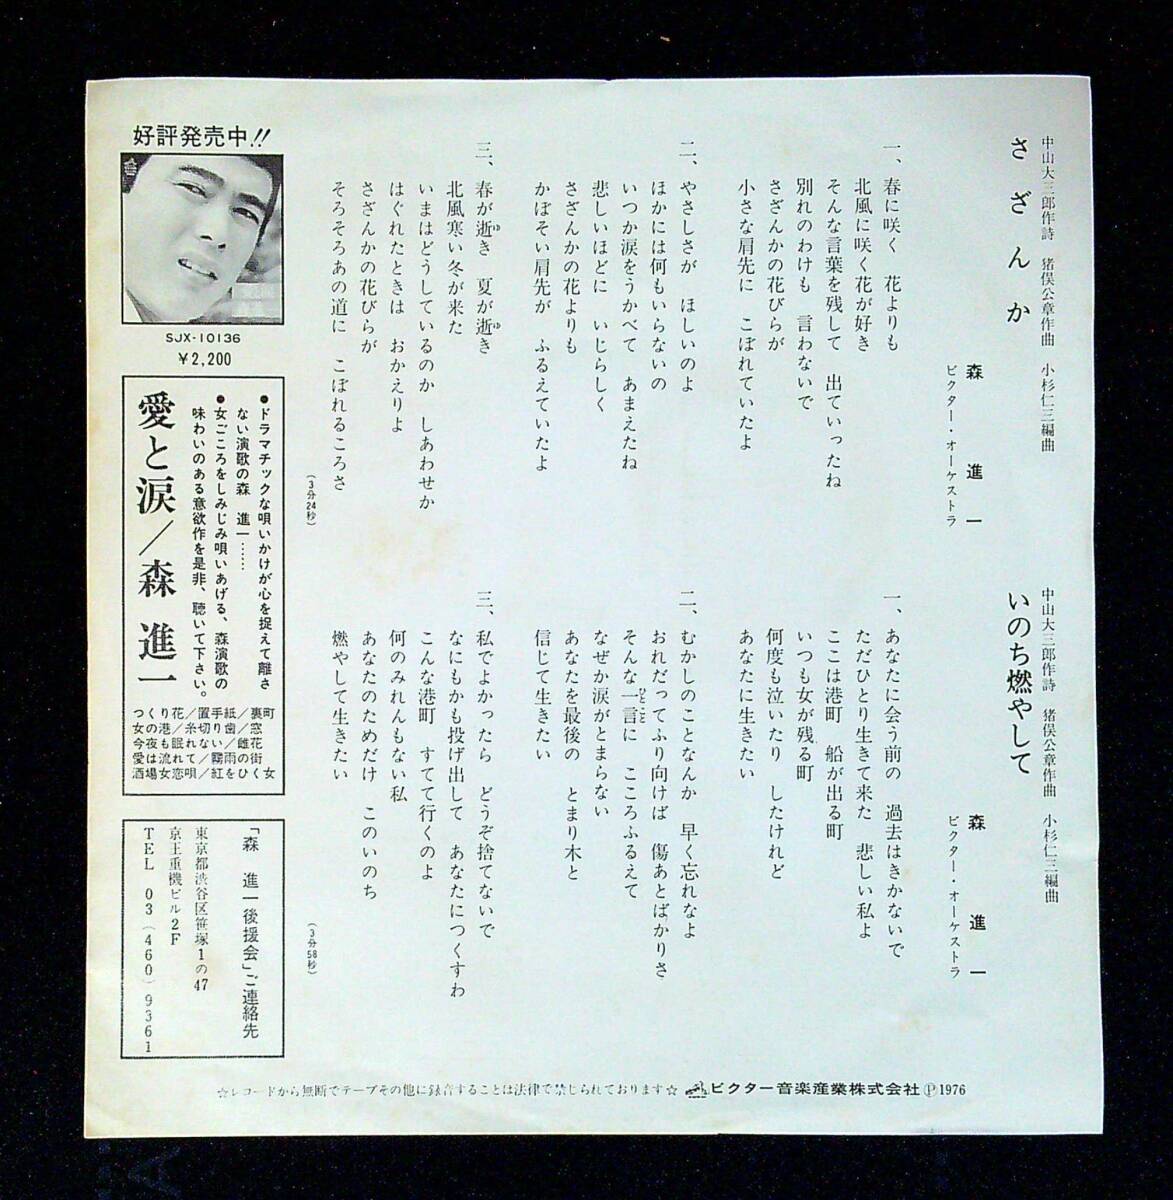 中山大三郎作詩　猪俣公章作曲　小杉仁三編曲
さざんか
森　進一
ビクター・オーケストラ
一、春に咲く　花よりも
北風に咲く花が好き
そんな言葉を残して　出ていったね
別れのわけも　言わないで
さざんかの花びらが
小さな肩先に　こぼれていたよ
二、やさしさが　ほしいのよ
ほかには何もいらないの
いつか涙をうかべて　あまえたね
悲しいほどに　いじらしく
さざんかの花よりも
かぼそい肩先が　ふるえていたよ
三、春が逝(ゆ)き　夏が逝(ゆ)き
北風寒い冬が来た
いまはどうしているのか　しあわせか
はぐれたときは　おかえりよ
さざんかの花びらが
そろそろあの道に　こぼれるころさ
(3分24秒)
中山大三郎作詩　猪俣公章作曲　小杉仁三編曲
いのち燃やして
森　進一
ビクター・オーケストラ
一、あなたに会う前の　過去はきかないで
ただひとり生きて来た　悲しい私よ
ここは港町　船が出る町
いつも女が残る町
何度も泣いたり　したけれど
あなたに生きたい
二、むかしのことなんか　早く忘れなよ
おれだってふり向けば　傷あとばかりさ
そんな一言(ひとこと)に　こころふるえて
なぜか涙がとまらない
あなたを最後の　とまり木と
信じて生きたい
三、私でよかったら　どうぞ捨てないで
なにもかも投げ出して　あなたにつくすわ
こんな港町　すてて行くのよ
何のみれんもない私
あなたのためだけ　このいのち
燃やして生きたい
(3分58秒)
好評発売中!!
SJX-10136
¥2,200
●ドラマチックな唄いかけが心を捉えて離さ
ない演歌の森　進一……
●女ごころをしみじみ唄いあげる、森演歌の
味わいのある意欲作を是非、聴いて下さい。
愛と涙／森　進一
つくり花／置手紙／裏町
女の港／糸切り歯／窓
今夜も眠れない／雌花
愛は流れて／霧雨の街
酒場女恋唄／紅をひく女
「森　進一後援会」ご連絡先
東京都渋谷区笹塚1の47
京王重機ビル2F
TEL　03(460)9361
☆レコードから無断でテープその他に録音することは法律で禁じられております☆　ビクター音楽産業株式会社Ⓟ1976